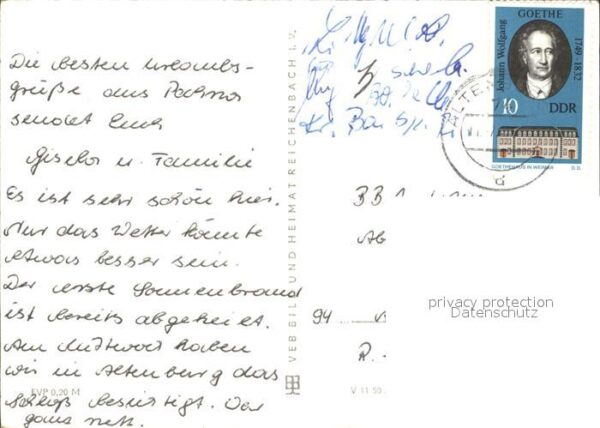 Die besten Urlaubs-
grüße aus Pahna
sendet Euch
Gisela u. Familie
Es ist sehr schön hier.
Nur das Wetter könnte
etwas besser sein.
Der erste Sonnenbrand
ist bereits abgeheilt.
Am Mittwoch haben
wir in Altenburg das
Schloß besichtigt. War
ganz nett.
EVP 0,20 M
VEB BILD UND HEIMAT REICHENBACH I. V.
V 11 50
GOETHE
Johann Wolfgang
1749-1832
10
DDR
GOETHEHAUS IN WEIMAR
ALTE
BB
Ab
94
R.
privacy protection
Datenschutz